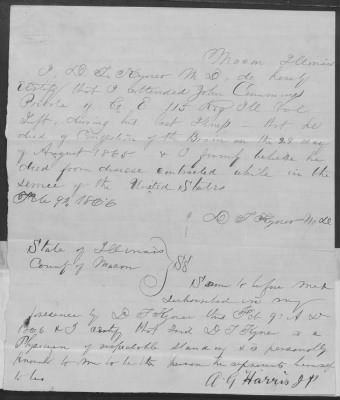 Macon Illinois
I, D. T. Kyner M. D., do hereby
Certify that I attended John Cummins
Private of Co E 115 Reg Ill Vol
Inft, during his last illness - that he
died of Congestion of the Brain on the 29 day
of August 1865 & I firmly believe he
died from disease contracted while in the
service of the United States
Feb 9th 1866
D T Kyner M. D.
State of Illinois
County of Macon } SS
Sworn to before me &
subscribed in my
presence by D T Kyner this Feb 9th A D
1866 & I certify that said D T Kyner is a
Physician of respectable standing & is personally
known to me to be the person he represents himself
to be
A G Harris J P